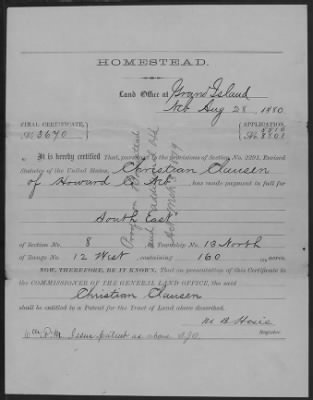 HOMESTEAD.
Land Office at Grand Island
Neb Aug 28 1880
FINAL CERTIFICATE,
No 3670
APPLICATION,
5510
No 8801
It is hereby certified That, pursuant to the provisions of Section No. 2291, Revised
Statutes of the United States, Christian Clausen
of Howard Co Neb, has made payment in full for
South East
of Section No. 8 in Township No. 13 North
of Range No. 12 West containing 160 acres.
NOW, THEREFORE, BE IT KNOWN, That on presentation of this Certificate to the
COMMISSIONER OF THE GENERAL LAND OFFICE, the said
Christian Clausen
shall be entitled to a Patent for the Tract of Land above described.
M B Hoxie
Register.
Issue patent as above
and additional Hd
Act March 3 1879